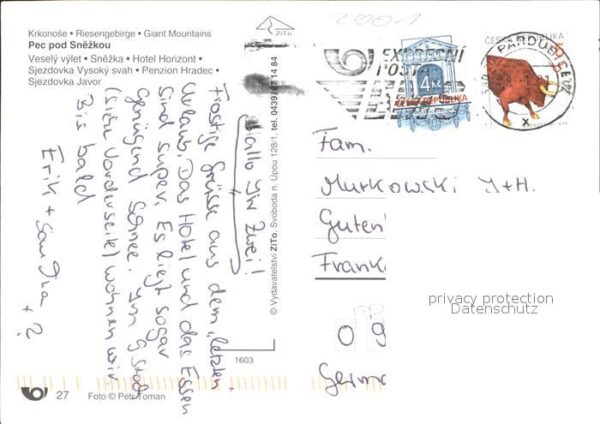 2001
Krkonoše • Riesengebirge • Giant Mountains
Pec pod Sněžkou
Veselý výlet • Sněžka • Hotel Horizont •
Sjezdovka Vysoký svah • Penzion Hradec •
Sjezdovka Javor
ZiTo
© Vydavatelství ZiTo. Svoboda n. Úpou 128/1. tel. 0439/87 14 84
Hallo Ihr Zwei!
Frostige Grüsse aus dem letzten
Urlaub. Das Hotel und das Essen
sind super. Es liegt sogar
genügend Schnee. Im 9. Stock
(siehe Vorderseite) wohnen wir
Bis bald
Erik + Sandra
+ ?
EXPRESNÍ
POŠTA
EMS
4 Kč
ČESKÁ REPUBLIKA
ČESKÁ REPUBLIKA
PARDUBICE
Fam.
Murkowski J+H.
Guten
Frank
privacy protection
Datenschutz
0 9
Germa
1603
27 Foto © Petr Toman